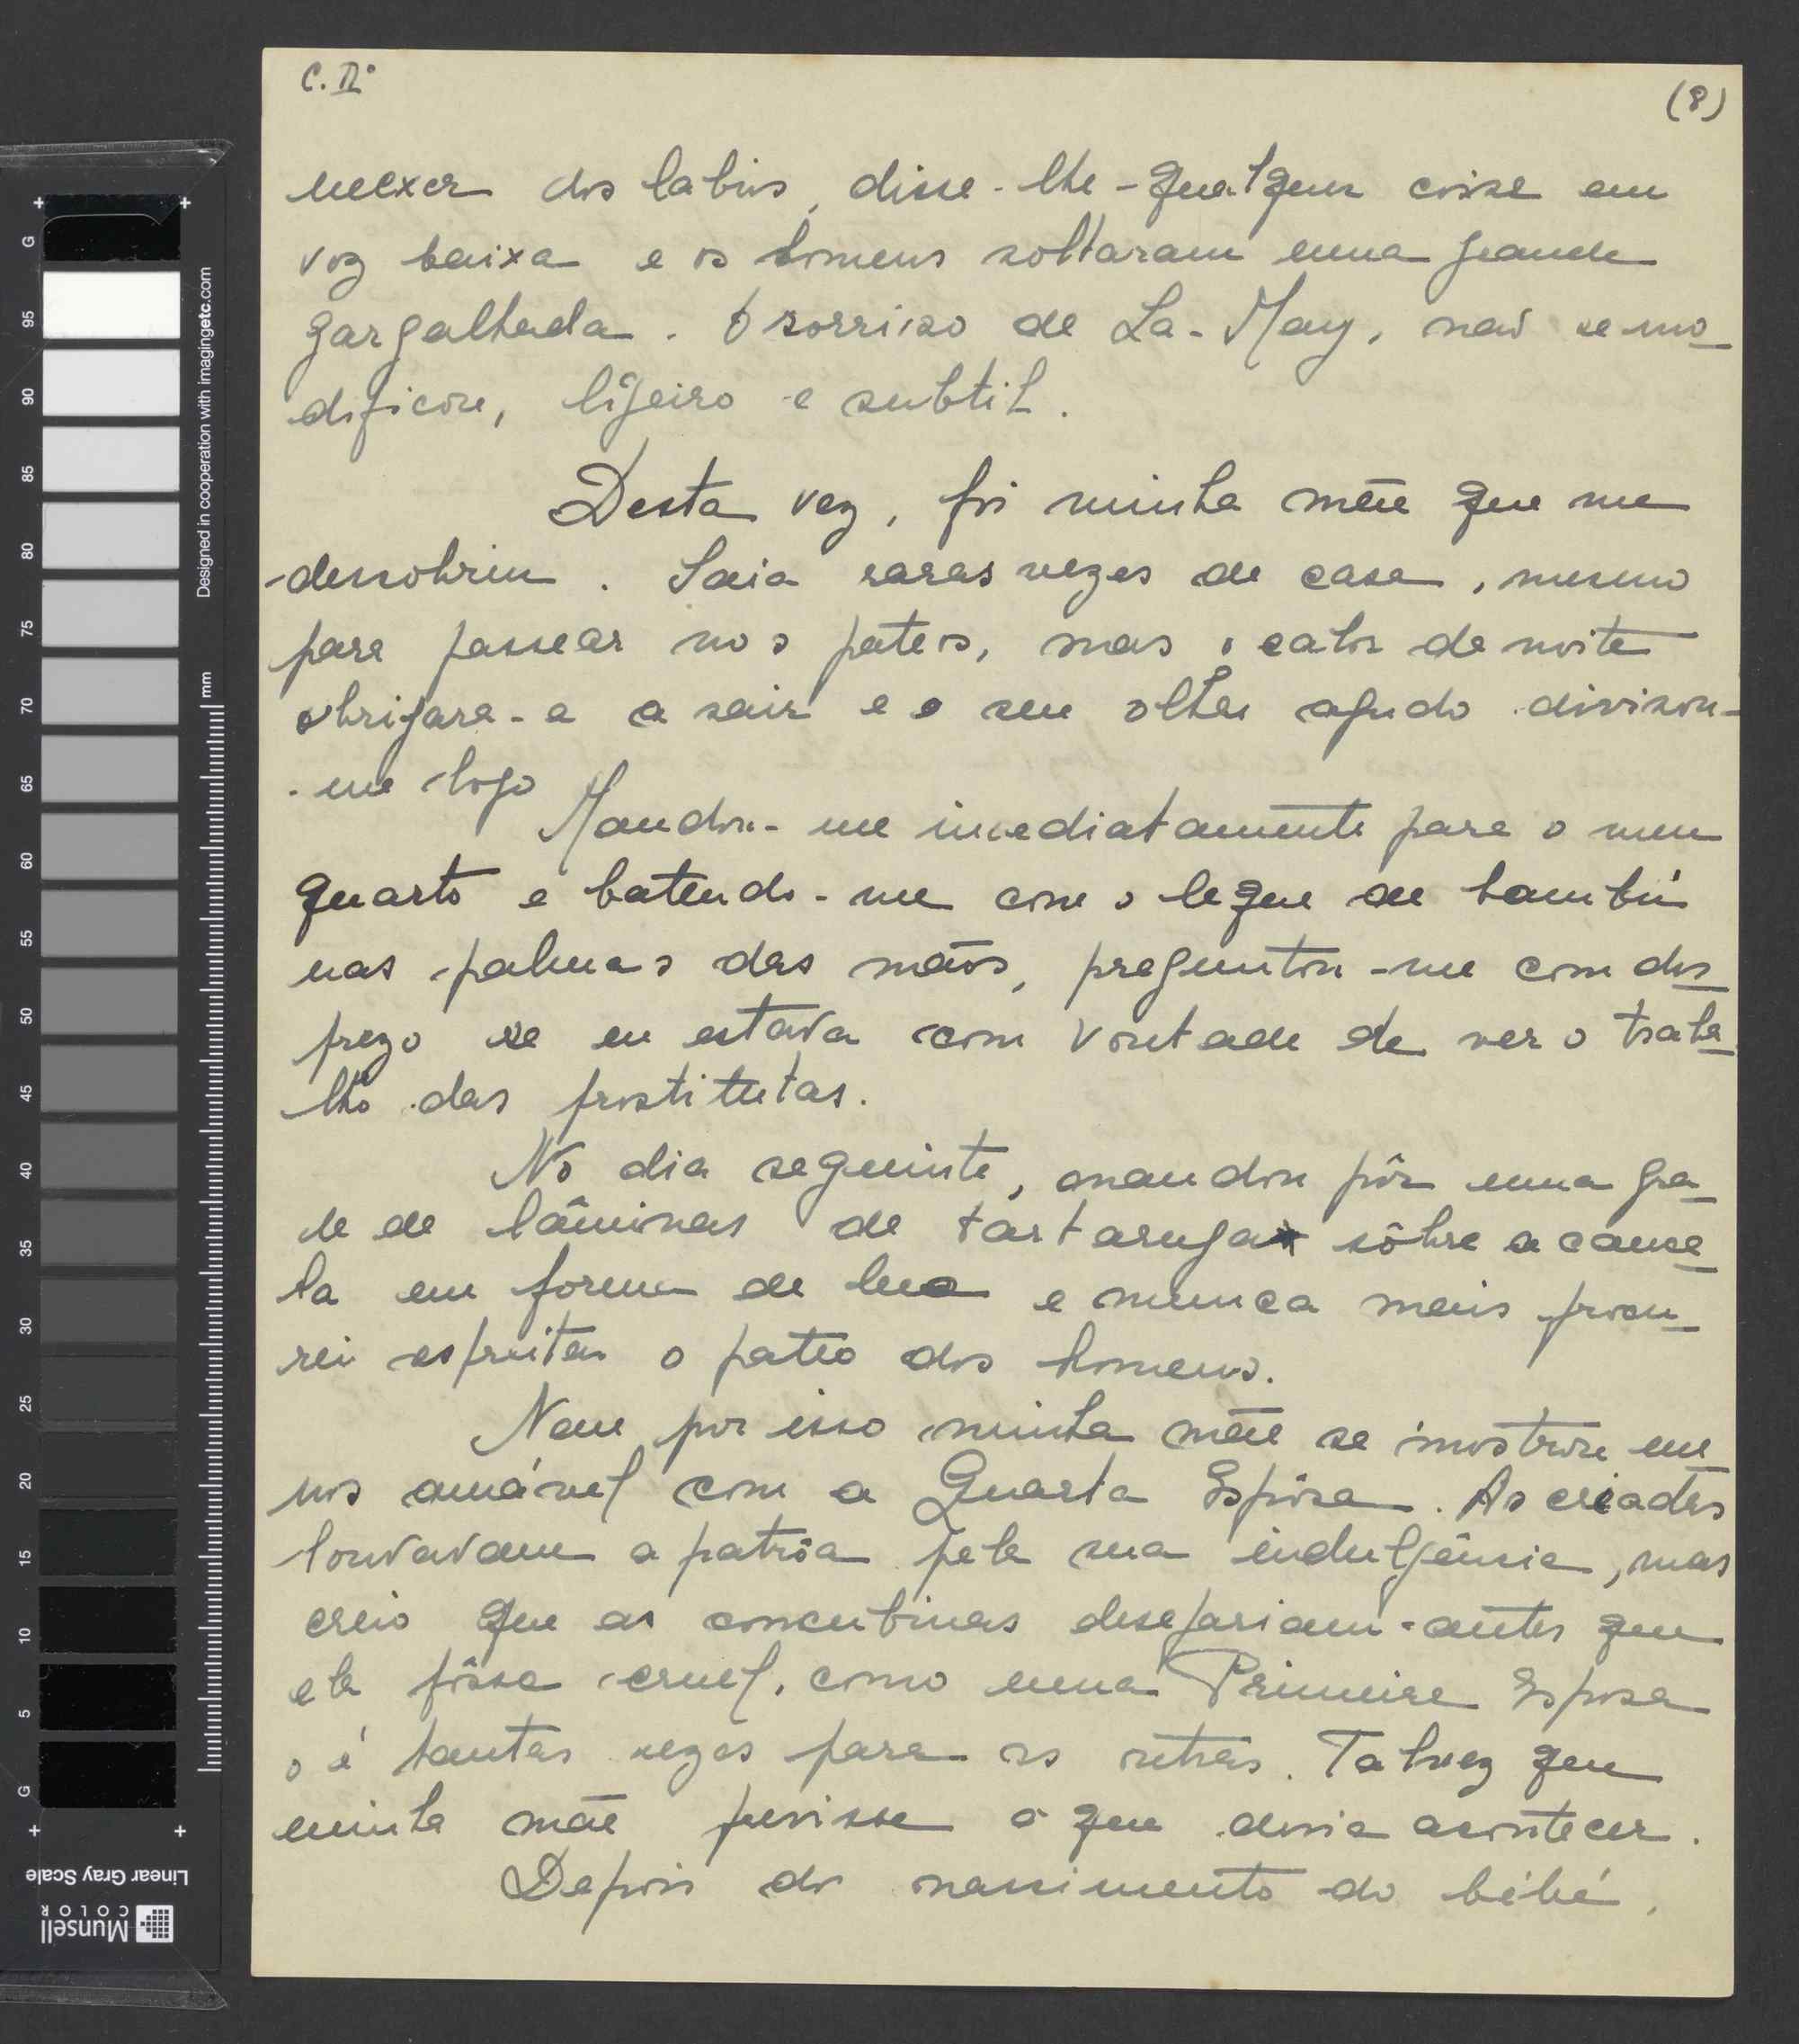 C. II°
(8)
mexer dos labios, disse-lhe qualquer coisa em
voz baixa e os homens soltaram uma grande
gargalhada. O sorriso de La-May, não se mo
dificou, ligeiro e subtil.
Desta vez, foi minha mãe que me
descobriu. Saia raras vezes de casa, mesmo
para passear nos pateos, mas o calor da noite
obrigara-a a sair e o seu olhar agudo divisou-
-me logo
Mandou-me imediatamente para o meu
quarto e batendo-me com o leque de bambú
nas palmas das mãos, preguntou-me com des
prezo se eu estava com vontade de ver o traba
lho das prostitutas.
No dia seguinte, mandou pôr uma gra
de de lâminas de tartaruga sôbre a cance
la em forma de lua e nunca mais procu
rei espreitar o pateo dos homens.
Nem por isso minha mãe se mostrou me
nos amável com a Quarta Espôsa. As criadas
louvavam a patrôa pela sua indulgência, mas
creio que as concubinas desejariam antes que
ela fôsse cruel, como uma Primeira Esposa
o é tantas vezes para as outras. Talvez que
minha mãe previsse o que devia acontecer.
Depois do nascimento do bébé,
Designed in cooperation with imagingetc.com
mm
G
95
90
85
80
75
70
65
60
55
50
45
40
35
30
25
20
15
10
5
G
Linear Gray Scale
Munsell
COLOR